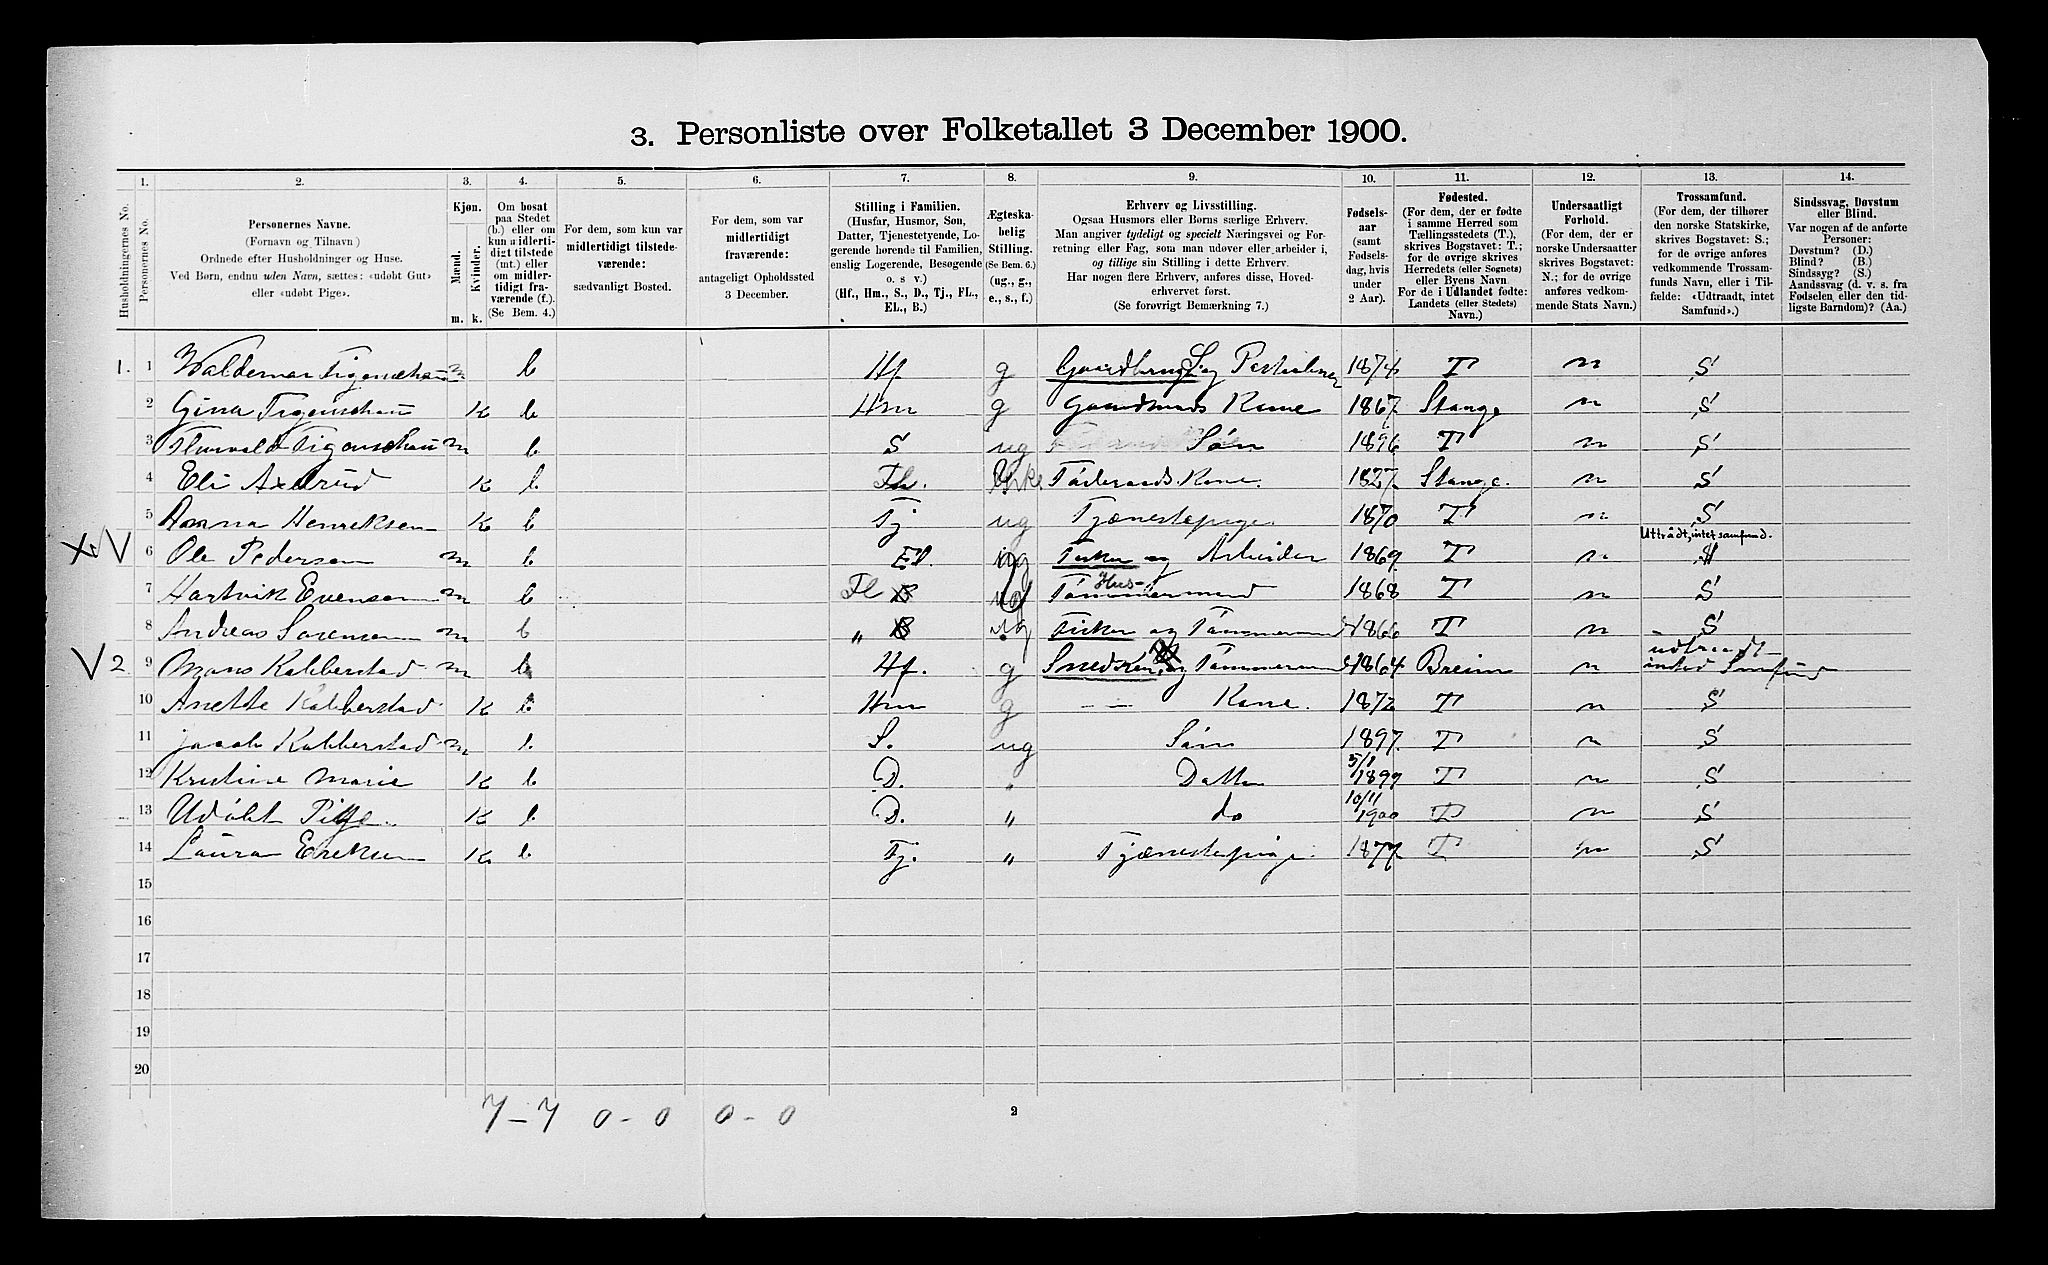 3. Personliste over Folketallet 3 December 1900.
1. 2. 3. 4. 5. 6. 7. 8. 9. 10. 11. 12. 13. 14.
Husholdningernes No.
Personernes No.
Personernes Navne.
(Fornavn og Tilnavn)
Ordnede efter Husholdninger og Huse.
Ved Børn, endnu uden Navn, sættes: «udøbt Gut»
eller «udøbt Pige».
Kjøn.
Mænd.
Kvinder.
m. k.
Om bosat
paa Stedet
(b.) eller om
kun midlerti-
digt tilstede
(mt.) eller
om midler-
tidigt fra-
værende (f.).
(Se Bem. 4.)
For dem, som kun var
midlertidigt tilstede-
værende:
sædvanligt Bosted.
For dem, som var
midlertidigt
fraværende:
antageligt Opholdssted
3 December.
Stilling i Familien.
(Husfar, Husmor, Søn,
Datter, Tjenestetyende, Lo-
gerende hørende til Familien,
enslig Logerende, Besøgende
o. s v.)
(Hf., Hm., S., D., Tj., FL.,
EL., B.)
Ægteska-
belig
Stilling.
(Se Bem. 6.)
(ug., g.,
e., s., f.)
Erhverv og Livsstilling.
Ogsaa Husmors eller Børns særlige Erhverv.
Man angiver tydeligt og specielt Næringsvei og For-
retning eller Fag, som man udøver eller arbeider i,
og tillige sin Stilling i dette Erhverv.
Har nogen flere Erhverv, anføres disse, Hoved-
erhvervet først.
(Se forøvrigt Bemærkning 7.)
Fødsels-
aar
(samt
Fødsels-
dag, hvis
under
2 Aar).
Fødested.
(For dem, der er fødte
i samme Herred som
Tællingsstedets (T.),
skrives Bogstavet: T.;
for de øvrige skrives
Herredets (eller Sognets)
eller Byens Navn
For de i Udlandet fødte:
Landets (eller Stedets)
Navn.)
Undersaatligt
Forhold.
(For dem, der er
norske Undersaatter
skrives Bogstavet:
N.; for de øvrige
anføres vedkom-
mende Stats Navn.)
Trossamfund.
(For dem, der tilhører
den norske Statskirke,
skrives Bogstavet: S.;
for de øvrige anføres
vedkommende Trossam-
funds Navn, eller i Til-
fælde: «Udtraadt, intet
Samfund».)
Sindssvag, Døvstum
eller Blind.
Var nogen af de anførte
Personer:
Døvstum? (D.)
Blind? (B.)
Sindssyg? (S.)
Aandssvag (d. v. s. fra
Fødselen eller den tid-
ligste Barndom)? (Aa.)
1. 1 Waldemar Tigenschau m b Hf g 1874 T n S
2 Gina Tigenschau K b Hm g Gaardbrugs Kone 1867 Stange n S
3 Thorvald Tigenschau m b S ug Søn 1896 T n S
4 Eli K b Fl. Kone 1827 Stange. n S
5 Anna Henriksen K b Tj ug Tjænestepige 1870 T n S
6 Ole Pedersen m b El. og Arbeider 1869 T n Uttrådt, intet samfund.
7 Hartvik Evensen m b Fl Hus- Tømmermand 1868 T n S
8 Andreas Sorensen m b „ Fisker og Tømmermand 1866 T n S
2. 9 Mons Kabberstad m b Hf. g Snedker og Tømmermand 1864 Breim n udtraadt intet Samfund
10 Anette Kabberstad K b Hm g — — Kone. 1872 T n S
11 Jacob Kabberstad m b S. ug Søn 1897 T n S
12 Kristine Marie K b D. „ Datter 5/1 1899 T n S
13 Udøbt Pige K b D. „ do 10/11 1900 T n S
14 Laura Eriksen K b Tj. „ Tjænestepige. 1877 T n S
15
16
17
18
19
20
7-7 0-0 0-0
2